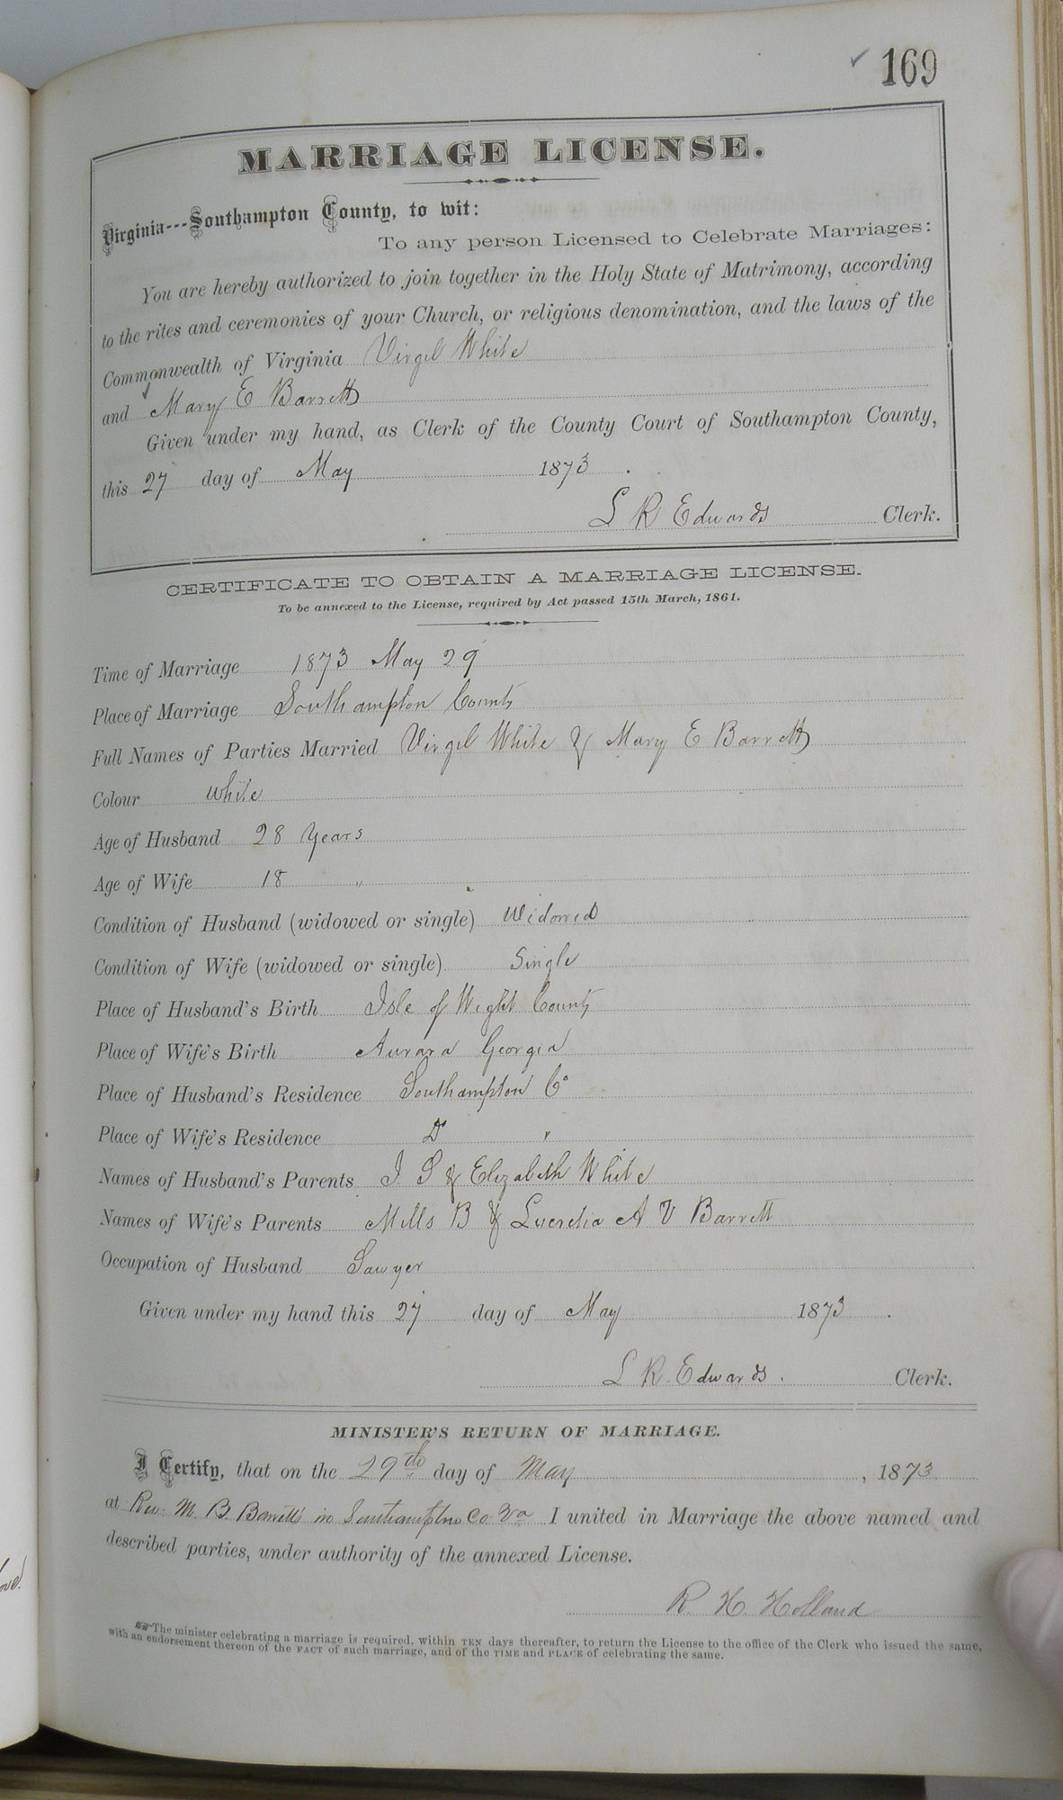 ✓ 169
MARRIAGE LICENSE.
Virginia---Southampton County, to wit:
To any person Licensed to Celebrate Marriages:
You are hereby authorized to join together in the Holy State of Matrimony, according
to the rites and ceremonies of your Church, or religious denomination, and the laws of the
Commonwealth of Virginia Virgil White
and Mary E Barrett
Given under my hand, as Clerk of the County Court of Southampton County,
this 27 day of May 1873.
L R Edwards Clerk.
CERTIFICATE TO OBTAIN A MARRIAGE LICENSE.
To be annexed to the License, required by Act passed 15th March, 1861.
Time of Marriage 1873 May 29
Place of Marriage Southampton County
Full Names of Parties Married Virgil White & Mary E Barrett
Colour White
Age of Husband 28 Years
Age of Wife 18 "
Condition of Husband (widowed or single) Widowed
Condition of Wife (widowed or single) Single
Place of Husband's Birth Isle of Wight County
Place of Wife's Birth Aurara Georgia
Place of Husband's Residence Southampton Co
Place of Wife's Residence Do "
Names of Husband's Parents J. S & Elizabeth White
Names of Wife's Parents Mills B & Lucretia A V Barrett
Occupation of Husband Sawyer
Given under my hand this 27 day of May 1873.
L R. Edwards. Clerk.
MINISTER'S RETURN OF MARRIAGE.
I Certify, that on the 29th day of May, 1873
at Rev. M. B. Barretts in Southampton Co. Va I united in Marriage the above named and
described parties, under authority of the annexed License.
R. H. Holland
The minister celebrating a marriage is required, within TEN days thereafter, to return the License to the office of the Clerk who issued the same,
with an endorsement thereon of the FACT of such marriage, and of the TIME and PLACE of celebrating the same.